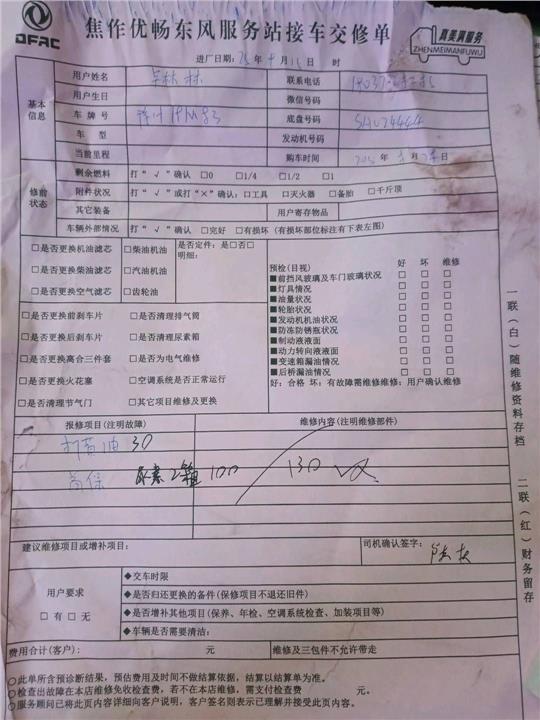 DFAC
焦作优畅东风服务站接车交修单
真美满服务
ZHENMEIMANFUWU
进厂日期: 年 月 日 时
基本信息
用户姓名 联系电话
用户生日 微信号码
车牌号 底盘号码 SHU24444
车型 发动机号码
当前里程 购车时间 年 月 日
修前状态
剩余燃料 打“√”确认 □0 □1/4 □1/2 □1
附件状况 打“√”或打“×”确认:□工具 □灭火器 □备胎 □千斤顶
其它装备 用户寄存物品
车辆外部情况 打“√”确认 □完好 □有损坏(有损坏部位标注有下表左图)
□是否更换机油滤芯 □柴油机油 是否定件:是□否□
明细:
□是否更换柴油滤芯 □汽油机油
□是否更换空气滤芯 □齿轮油
□是否更换前刹车片 □是否清理排气筒
□是否更换后刹车片 □是否清理尿素箱
□是否更换离合三件套 □是否为电气维修
□是否更换火花塞 □空调系统是否正常运行
□是否清理节气门 □其它项目维修及更换
预检(目视) 好 坏 维修
■前挡风玻璃及车门玻璃状况 □ □ □
■灯具情况 □ □ □
■油量状况 □ □ □
■轮胎状况 □ □ □
■发动机机油状况 □ □ □
■防冻防锈液状况 □ □ □
■制动液液面 □ □ □
■动力转向液液面 □ □ □
■变速箱漏油情况 □ □ □
■后桥漏油情况 □ □ □
好:合格 坏:有故障需维修维修:用户确认维修
报修项目(注明故障) 维修内容(注明维修部件)
打黄油 30
尿素2箱 100 130
建议维修项目或增补项目: 司机确认签字:
用户要求
□有□无
◆交车时限
◆是否归还更换的备件(保修项目不退还旧件)
◆是否增补其他项目(保养、年检、空调系统检查、加装项目等)
◆车辆是否需要清洁:
费用合计(客户): 元 维修及三包件不允许带走
○此单所含预诊断结果,预估费用及时间不做结算依据,结算以结算单为准。
○检查出故障在本店维修免收检查费,若不在本店维修,需支付检查费 元。
○服务顾问已将此页内容详细向客户说明,客户签名则表示已理解并接受此页内容。
一联(白)随维修资料存档
二联(红)财务留存